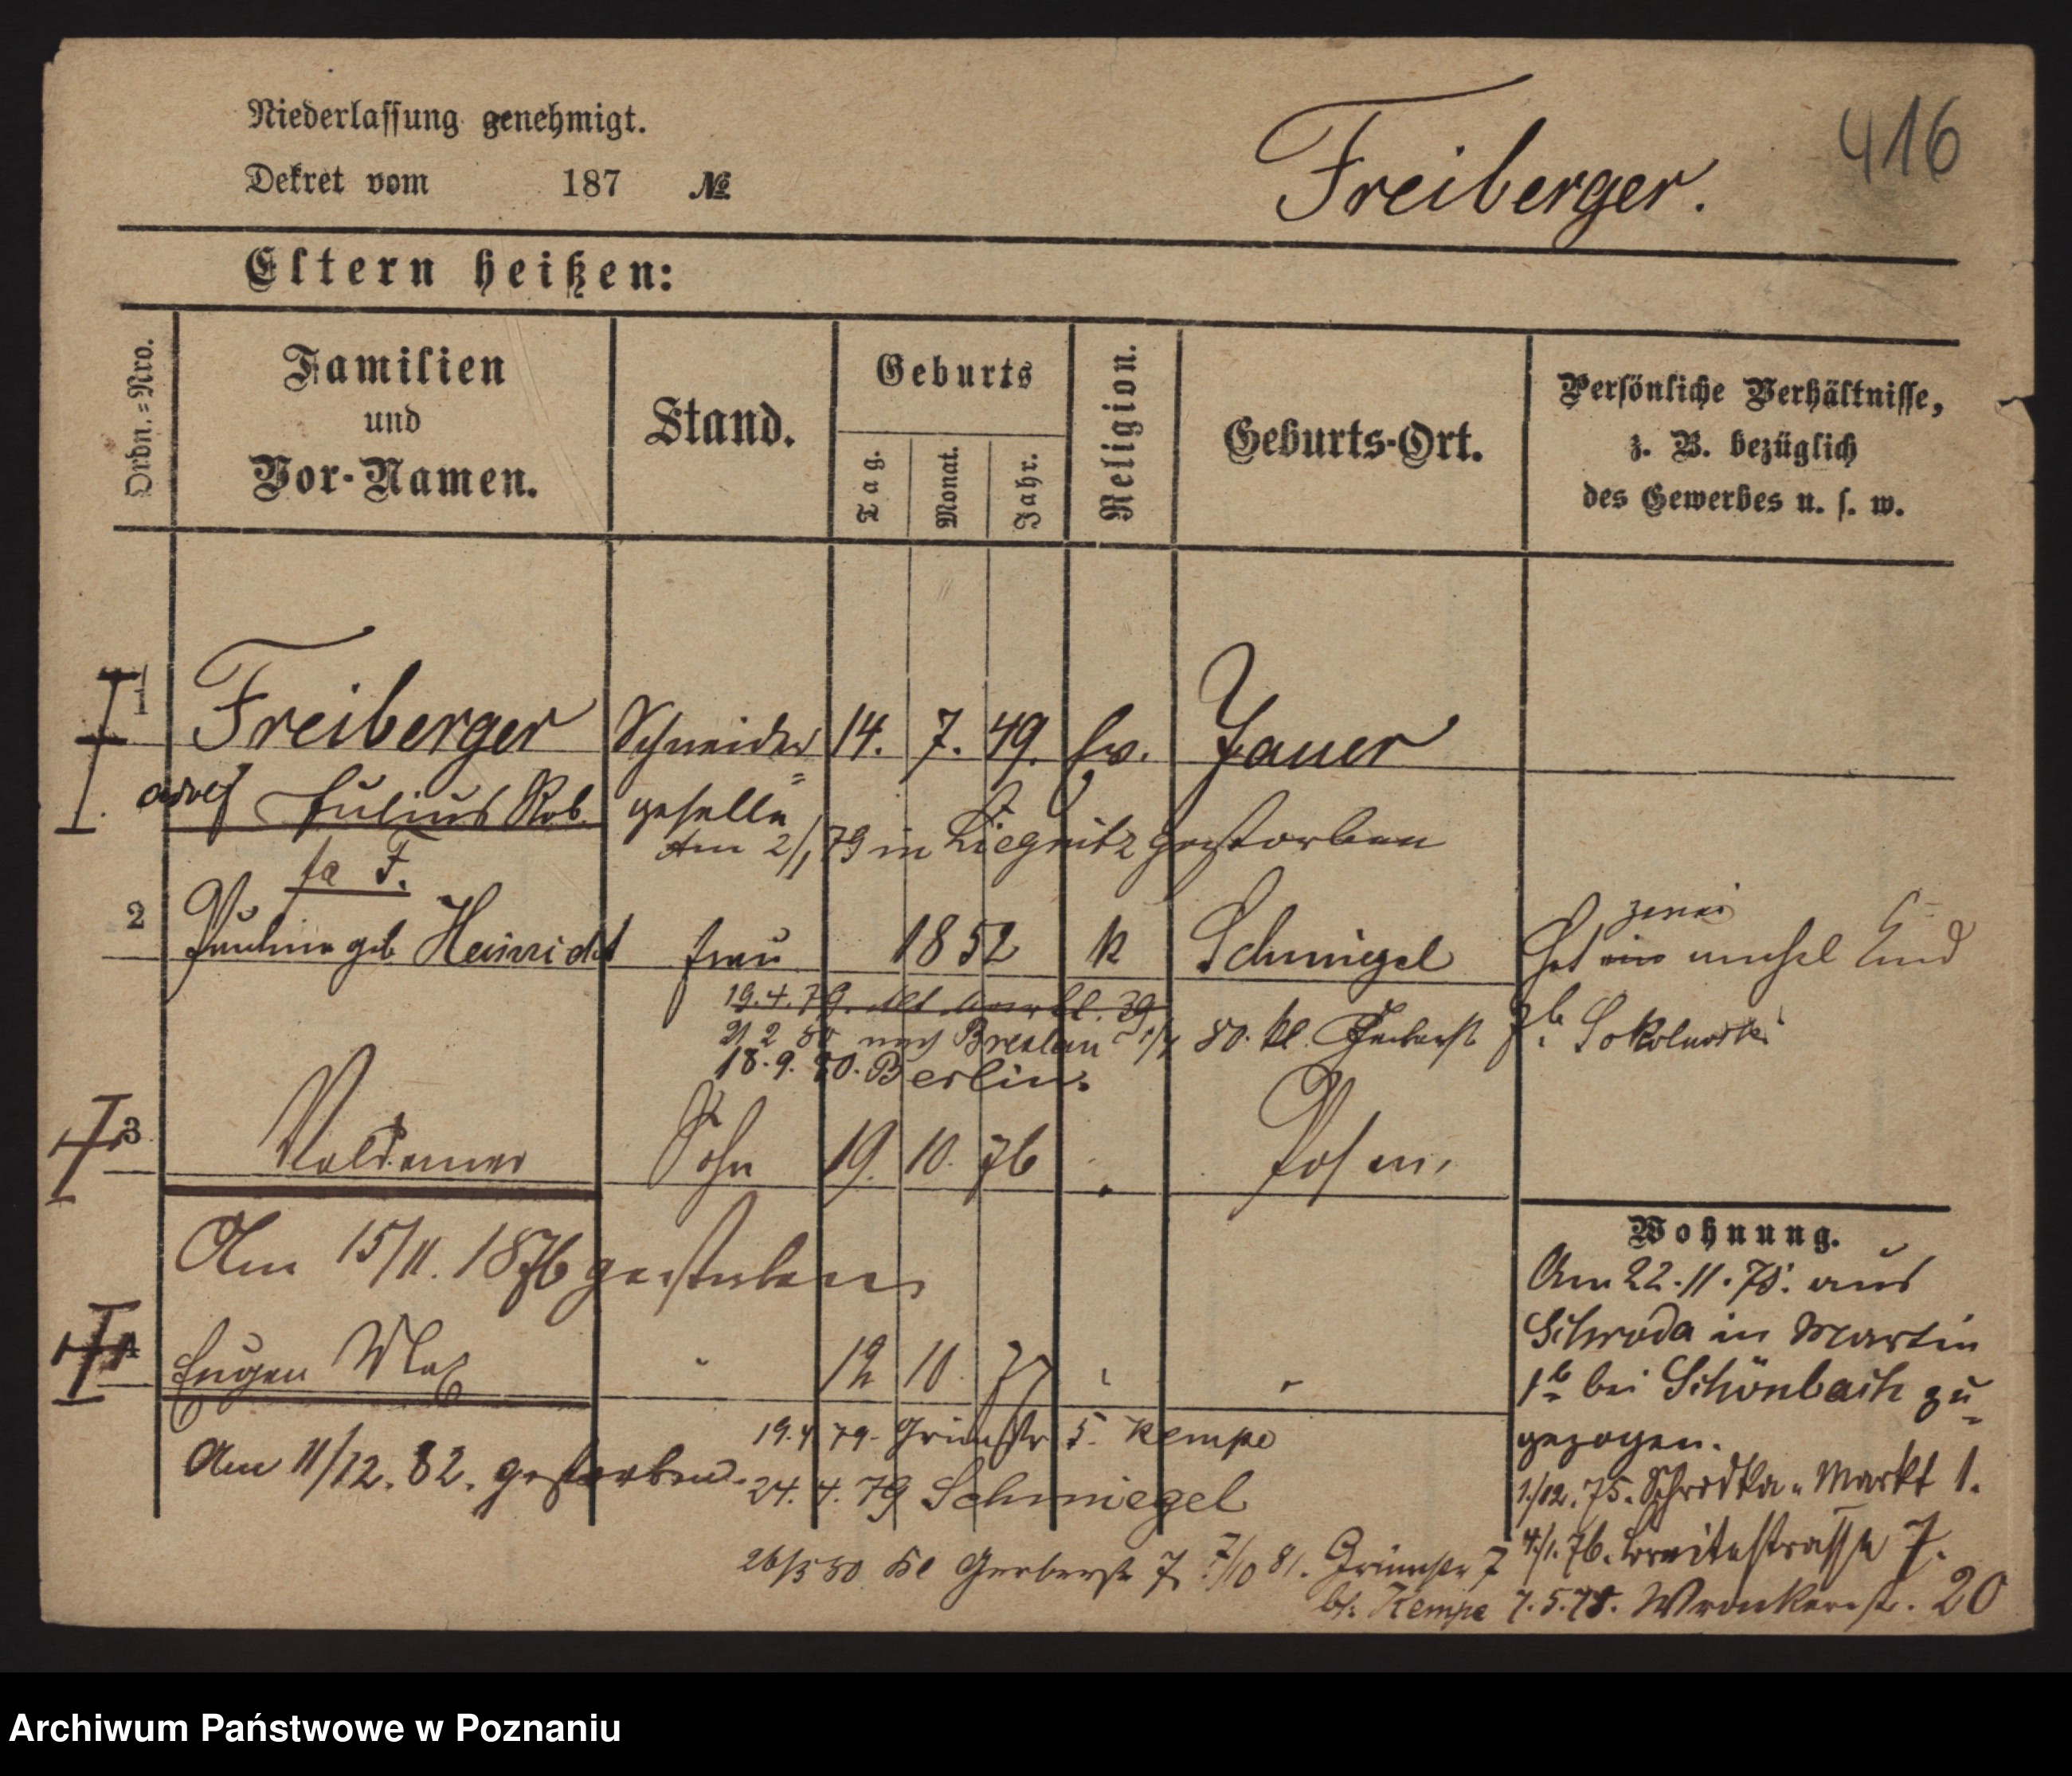 Niederlassung genehmigt.
Dekret vom 187 №
Freiberger.
416
Eltern heißen:
Ordn.=Nro.
Familien
und
Vor-Namen.
Stand.
Geburts
Tag.
Monat.
Jahr.
Religion.
Geburts-Ort.
Persönliche Verhältnisse,
z. B. bezüglich
des Gewerbes u. s. w.
1 Freiberger Schneider 14. 7. 49. ev. Jauer
Julius Rob. geselle
Am 2/1 79 in Liegnitz gestorben
F.
2 Pauline geb Heinrich frau 1852 k Schmiegel
zwei
Hat ein unehel Kind
19.4.79. 39
21 2 80 nach Breslau 80. kl. Gerberst
18.9.80. Berlin.
3 Woldemar Sohn 19. 10. 76 Posen.
Am 15/11. 1876 gestorben
4 Eugen Max 12 10 77
Am 11/12. 82. gestorben.
19.4 79. Grünstr 5. Kempe
24. 4. 79 Schmiegel
26/3 80 Kl Gerberstr 7 7/10 81. Grünstr 7
b/: Kempe
Wohnung.
Am 22.11.75. aus
Schroda in Martin
bei Schönbach zu
gezogen.
1/12.75. Schrodka-Markt 1.
4/1.76. Breitestrasse 7.
7.5.78. Wronkerstr. 20
Archiwum Państwowe w Poznaniu